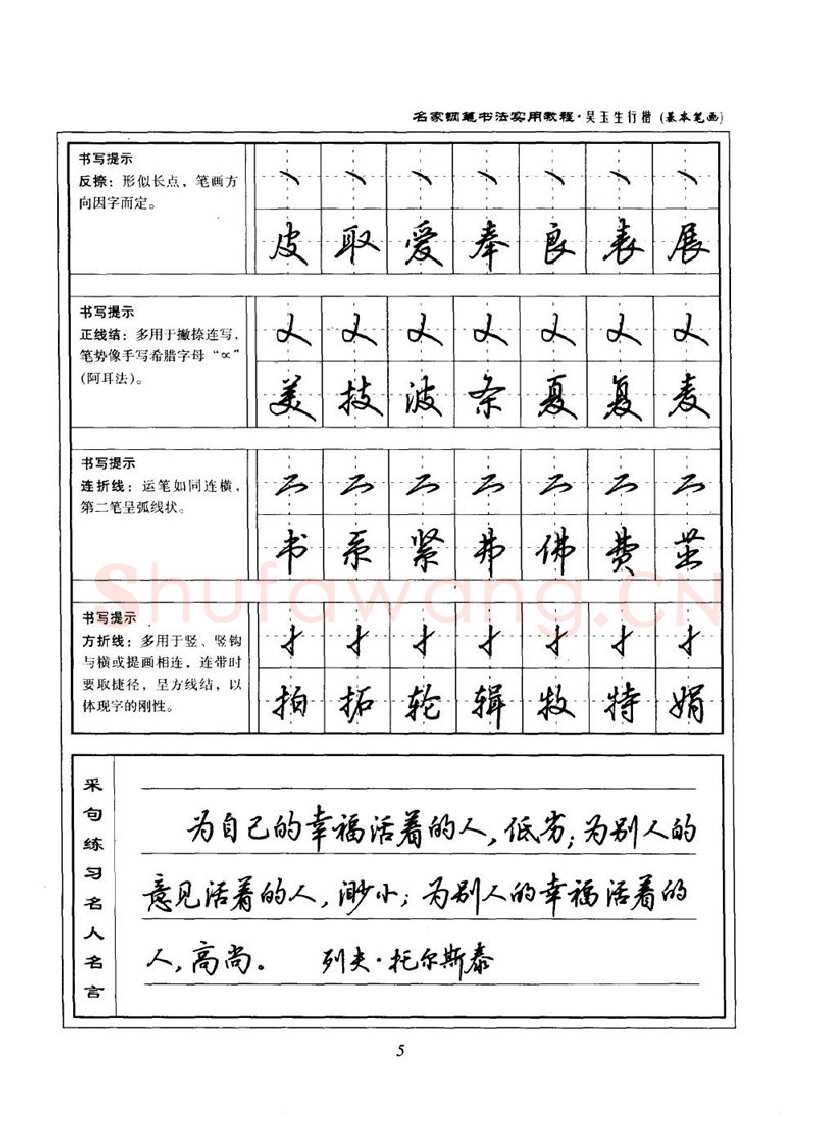 名家钢笔书法实用教程·吴玉生行楷(基本笔画)
书写提示
反捺：形似长点，笔画方
向因字而定。
皮取爱奉良表展
书写提示
正线结：多用于撇捺连写，
笔势像手写希腊字母“∝”
(阿耳法)。
美技波条夏复麦
书写提示
连折线：运笔如同连横，
第二笔呈弧线状。
书系紧弗佛费茎
书写提示
方折线：多用于竖、竖钩
与横或提画相连，连带时
要取捷径，呈方线结，以
体现字的刚性。
拍拓轮辑牧特娟
采句练习名人名言
为自己的幸福活着的人，低劣；为别人的
意见活着的人，渺小；为别人的幸福活着的
人，高尚。 列夫·托尔斯泰
5
Shufawang.CN